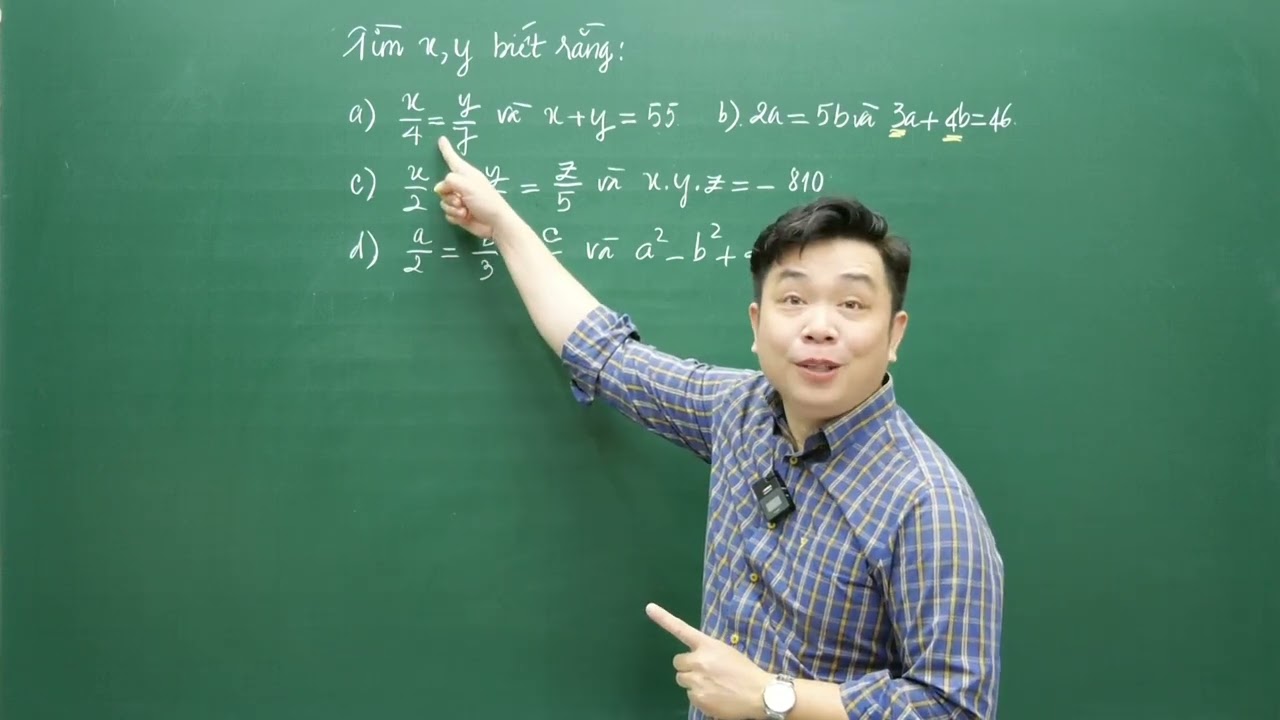 Tìm x, y biết rằng:
a) x/4 = y/7 và x + y = 55 b). 2a = 5b và 3a + 4b = 46.
c) x/2 y = z/5 và x.y.z = - 810
d) a/2 = /3 c và a² - b² +